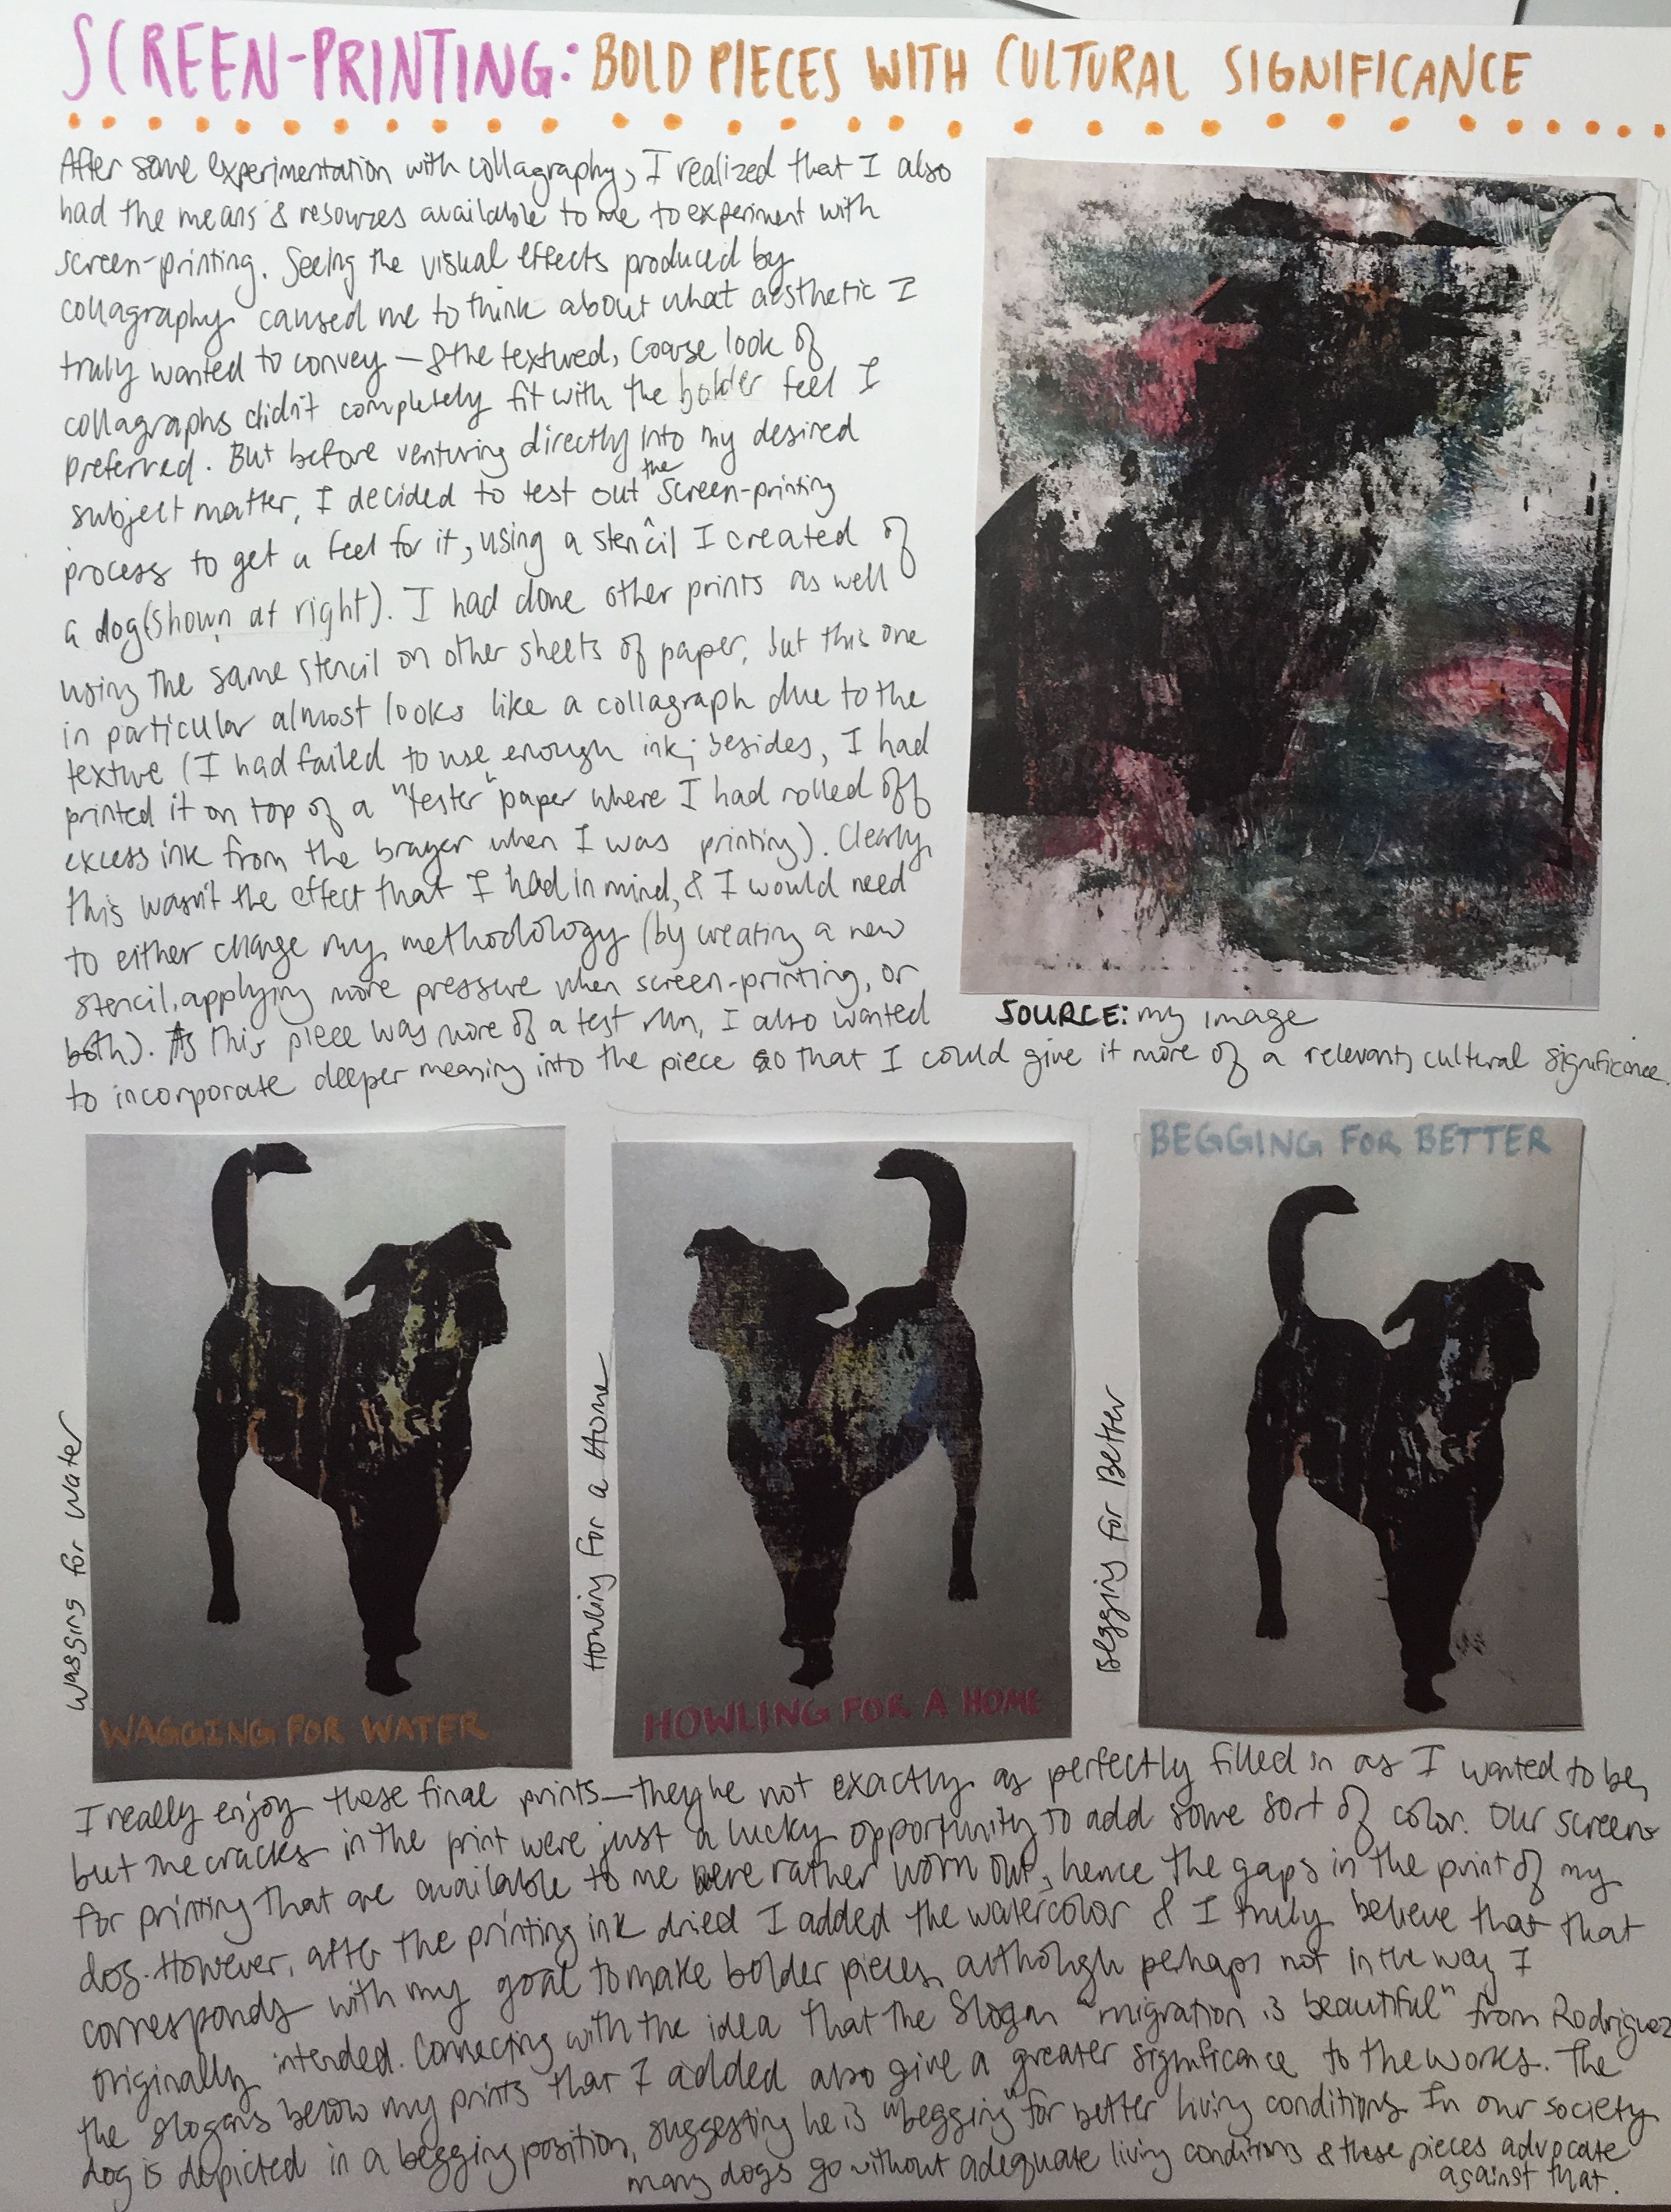 SCREEN-PRINTING: BOLD PIECES WITH CULTURAL SIGNIFICANCE
After some experimentation with collagraphy, I realized that I also
had the means & resources available to me to experiment with
screen-printing. Seeing the visual effects produced by
collagraphy caused me to think about what aesthetic I
truly wanted to convey — & the textured, coarse look of
collagraphs didn't completely fit with the bolder feel I
preferred. But before venturing directly into my desired
subject matter, I decided to test out the screen-printing
process to get a feel for it, using a stencil I created of
a dog (shown at right). I had done other prints as well
using the same stencil on other sheets of paper, but this one
in particular almost looks like a collagraph due to the
texture (I had failed to use enough ink; besides, I had
printed it on top of a "tester" paper where I had rolled off
excess ink from the brayer when I was printing). Clearly,
this wasn't the effect that I had in mind, & I would need
to either change my methodology (by creating a new
stencil, applying more pressure when screen-printing, or
both). As this piece was more of a test run, I also wanted
to incorporate deeper meaning into the piece so that I could give it more of a relevant, cultural significance.
SOURCE: my image
Wagging for Water
WAGGING FOR WATER
Howling for a Home
HOWLING FOR A HOME
Begging for Better
BEGGING FOR BETTER
I really enjoy these final prints—they're not exactly as perfectly filled in as I wanted to be,
but the cracks in the print were just a lucky opportunity to add some sort of color. Our screens
for printing that are available to me were rather worn out, hence the gaps in the print of my
dog. However, after the printing ink dried I added the watercolor & I truly believe that that
corresponds with my goal to make bolder pieces, although perhaps not in the way I
originally intended. Connecting with the idea that the slogan "migration is beautiful" from Rodriguez
the slogans below my prints that I added also give a greater significance to the works. The
dog is depicted in a begging position, suggesting he is "begging" for better living conditions. In our society
many dogs go without adequate living conditions & these pieces advocate
against that.